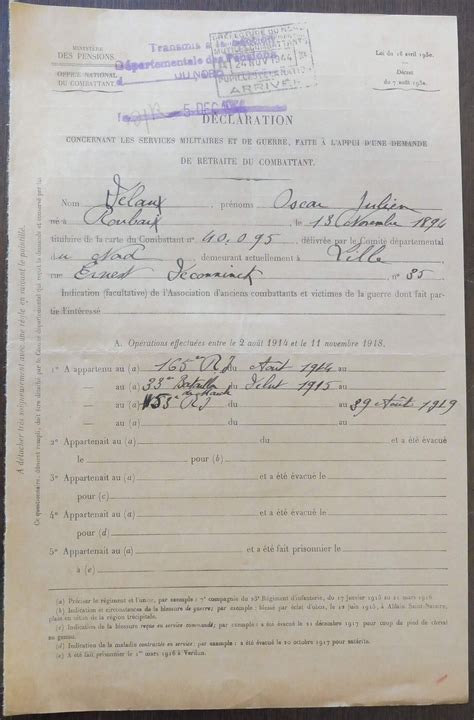 MINISTÈRE
DES PENSIONS.
OFFICE NATIONAL
DU COMBATTANT.
Transmis à la Section
Départementale des Pensions
DU NORD
PRÉFECTURE DU NORD
24 NOV 1944
ARRIVÉE
5 DEC
Loi du 16 avril 1930.
Décret
du 7 août 1930.
DÉCLARATION
CONCERNANT LES SERVICES MILITAIRES ET DE GUERRE, FAITE À L'APPUI D'UNE DEMANDE
DE RETRAITE DU COMBATTANT.
Nom Velaux, prénoms Oscar Julien
né à Roubaix le 13 Novembre 1894
titulaire de la carte du Combattant n° 40.095 délivrée par le Comité départemental
du Nord demeurant actuellement à Lille
rue Ernest Deconninck n° 35
Indication (facultative) de l'Association d'anciens combattants et victimes de la guerre dont fait par-
tie l'intéressé
A. Opérations effectuées entre le 2 août 1914 et le 11 novembre 1918.
1° A appartenu au (a) 165e RI du Août 1914 au
— au (a) 33e Bataillon du 1915 au
— au (a) 153e RI du au 29 Août 1919
2° Appartenait au (a) du du et a été
le pour (b)
3° Appartenait au (a) du et a été évacué le
pour (c)
4° Appartenait au (a) du et a été évacué le
pour (d)
5° Appartenait au (a) et a été fait prisonnier le
à (e)
(a) Préciser le régiment et l'unité, par exemple : 7e compagnie du 23e Régiment d'infanterie, du 17 janvier 1915 au 21 mars 1916.
(b) Indication et circonstances de la blessure de guerre; par exemple : blessé par éclat d'obus, le 12 juin 1915, à Ablain Saint-Nazaire,
plaie en séton de la région tricipitale.
(c) Indication de la blessure reçue en service commandé; par exemple : a été évacué le 21 décembre 1917 pour coup de pied de cheval
au genou.
(d) Indication de la maladie contractée en service; par exemple : a été évacué le 10 octobre 1917 pour entérite.
(e) A été fait prisonnier le 1er mars 1916 à Verdun.
A détacher très soigneusement avec une règle en suivant le pointillé.